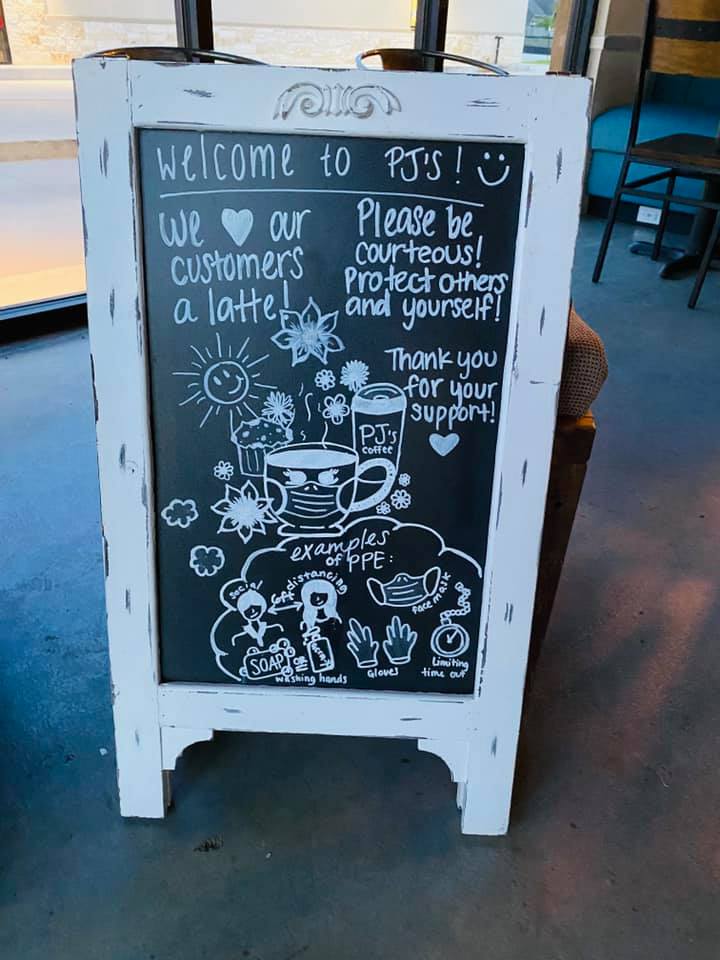 Welcome to PJ's!
We our
customers
a latte!
Please be
courteous!
Protect others
and yourself!
Thank you
for your
support!
PJ's
coffee
examples
of PPE:
Social
distancing
6ft
face mask
SOAP
washing hands
Gloves
Limiting
time out